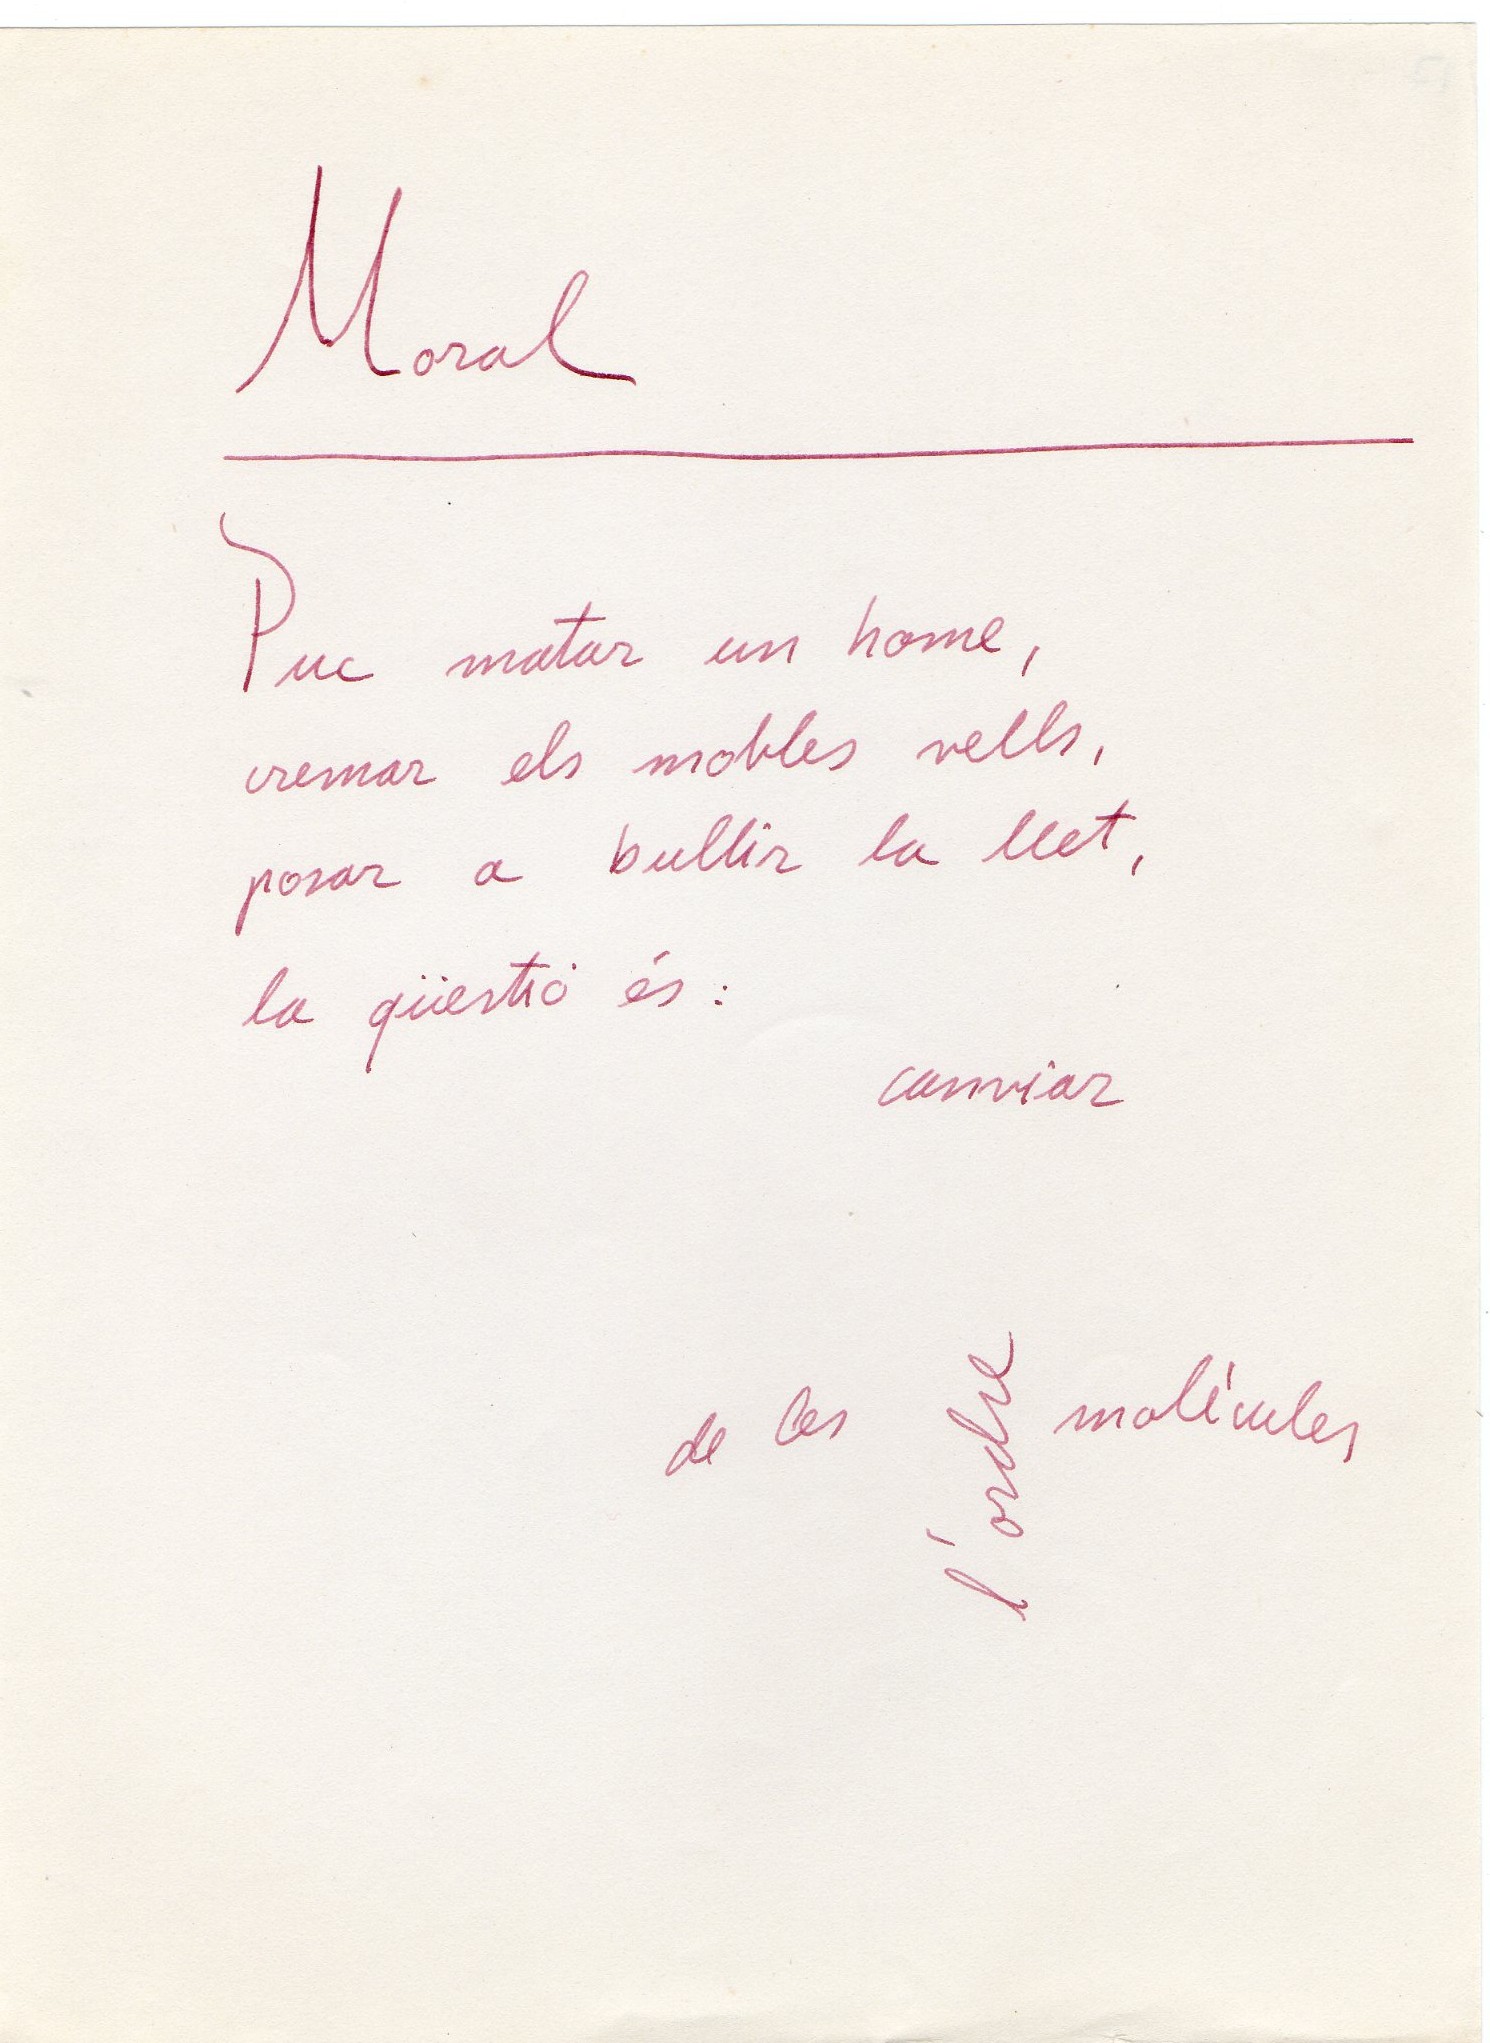 Moral
Puc matar un home,
cremar els mobles vells,
posar a bullir la llet,
la qüestió és:
canviar
l'ordre
de les molécules